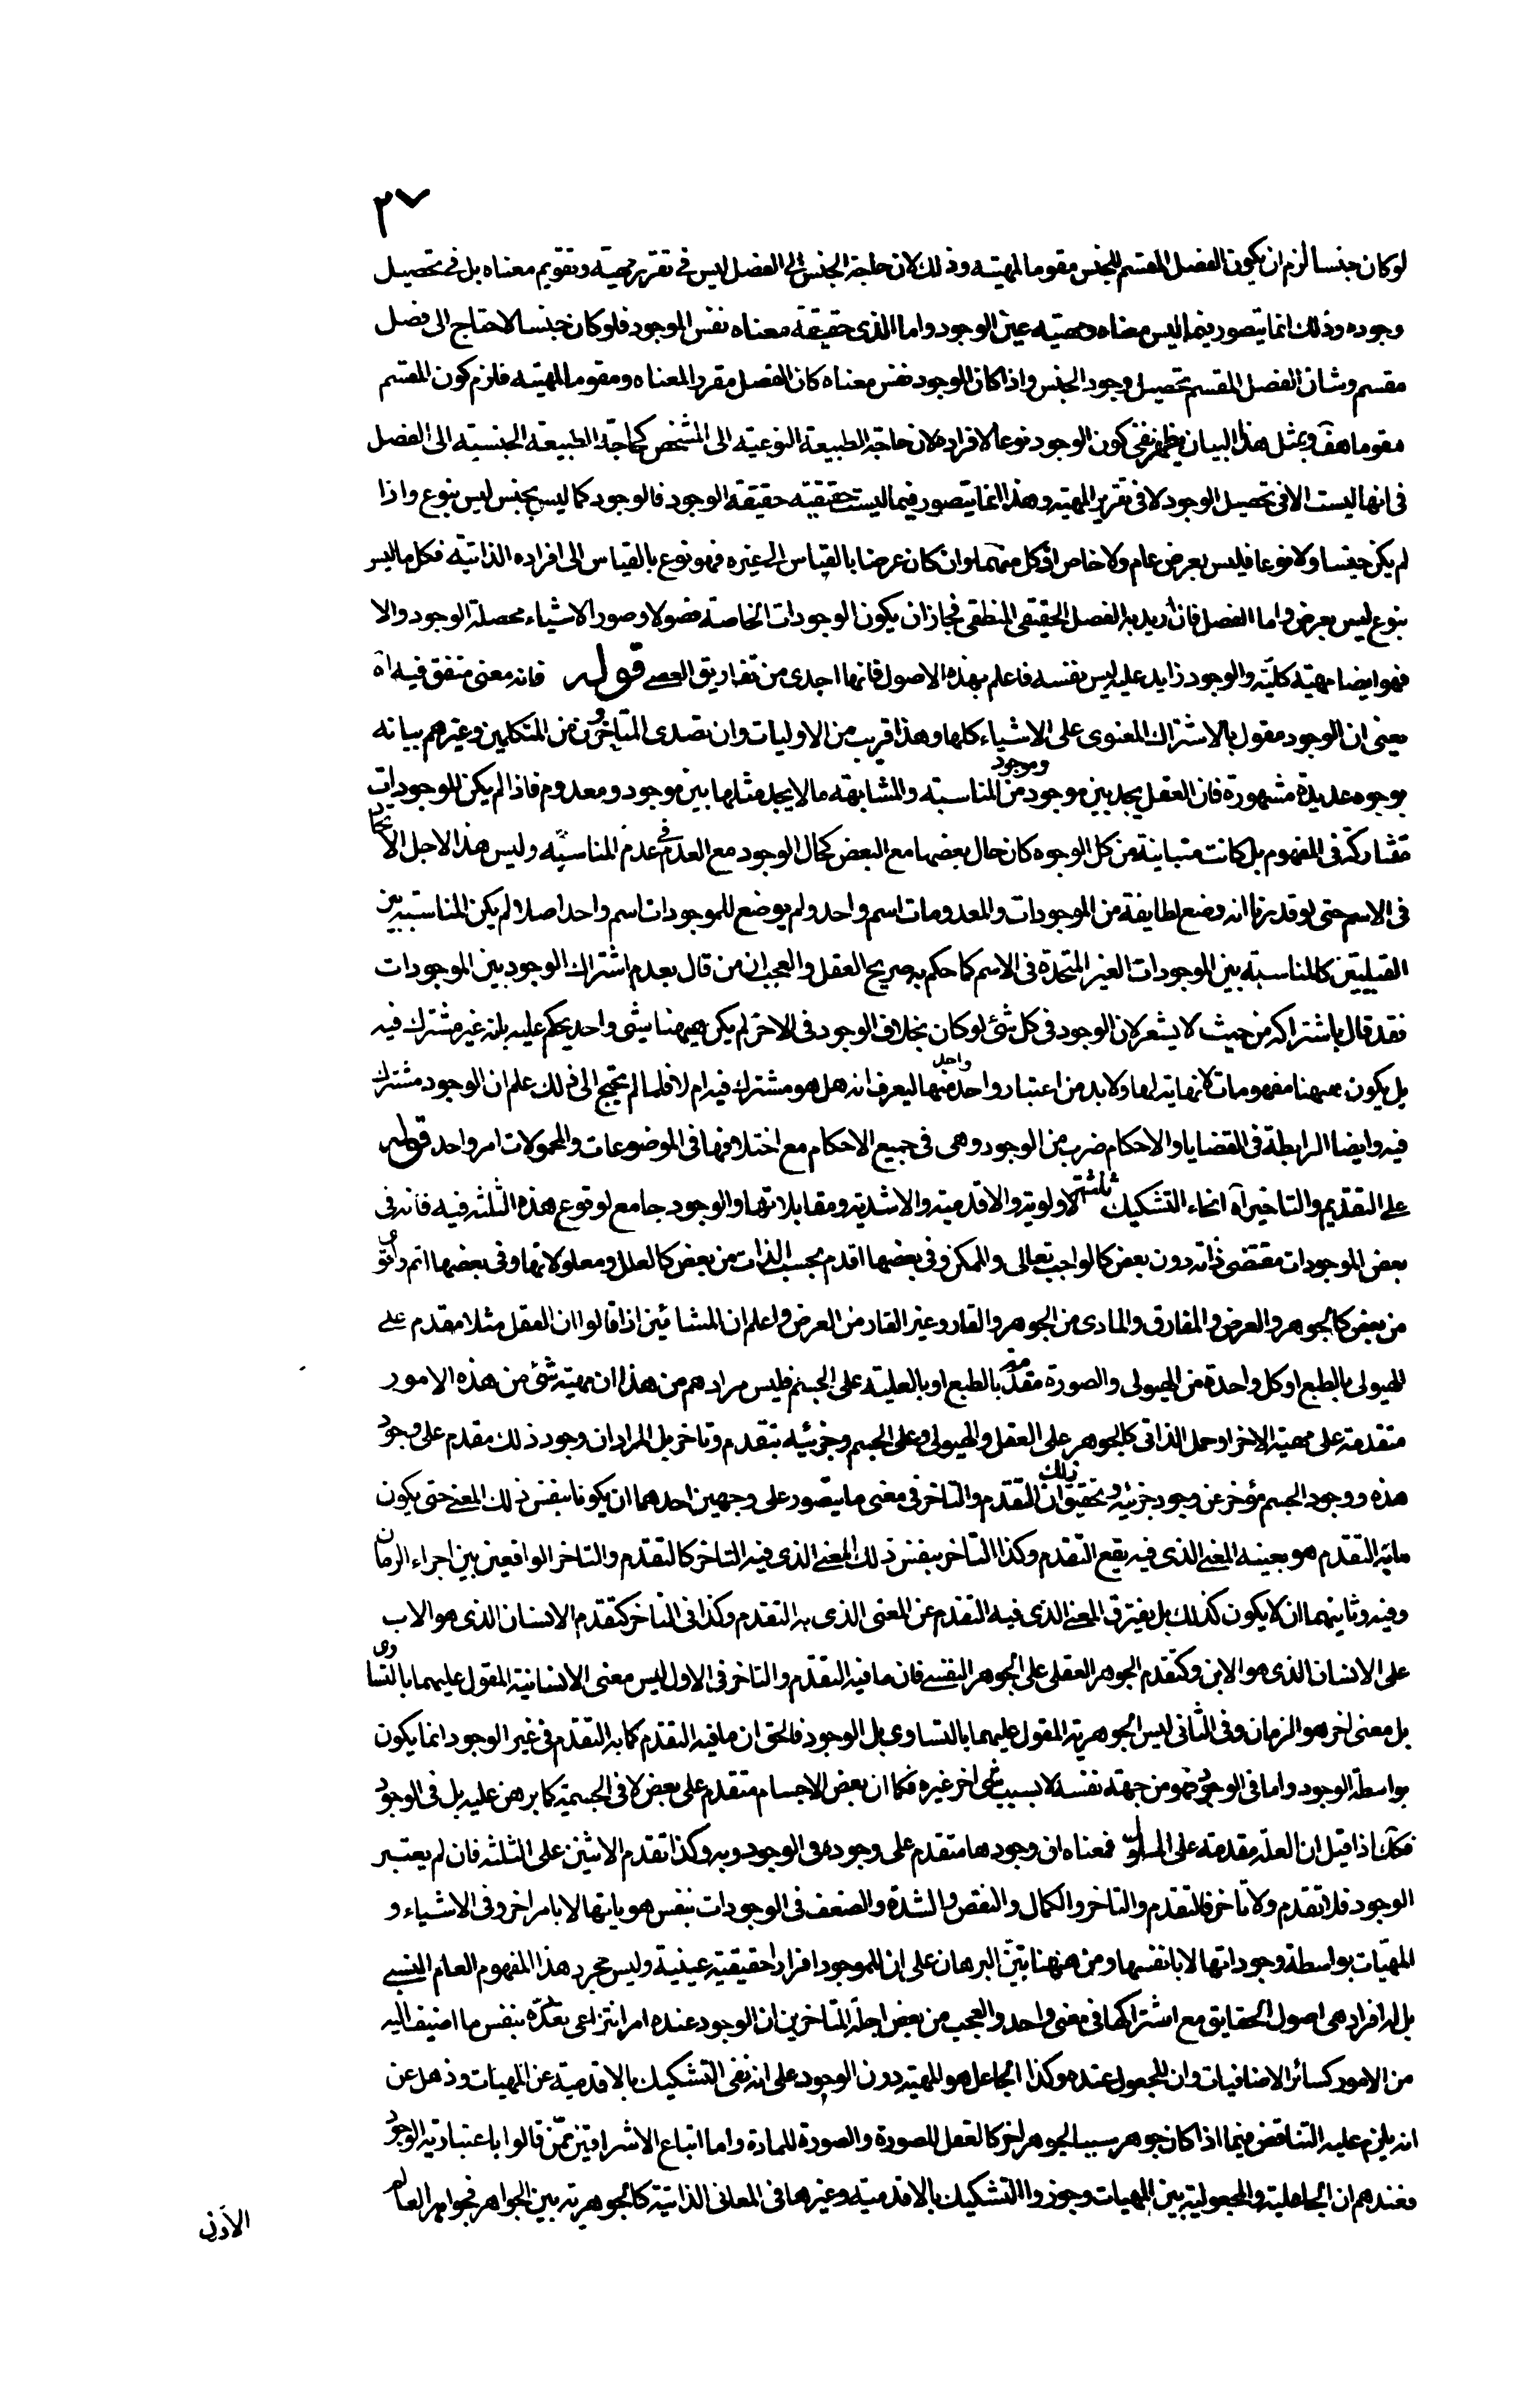 ٢٧
لو كان جنسا لزم ان يكون الفصل المقسم للجنس مقوما لمهيته وذلك لان حاجة الجنس الى الفصل ليس فى تقرير مهيته وتقويم معناه بل فى تحصيل
وجوده وذلك انما يتصور فيما ليس معناه ومهيته عين الوجود واما الذى حقيقة معناه نفس الوجود فلو كان جنسا لاحتاج الى فصل
مقسم وشان الفصل المقسم تحصيل وجود الجنس واذا كان الوجود نفس معناه كان الفصل مقررا لمعناه ومقوما لمهيته فلزم كون المقسم
مقوما هف وبمثل هذا البيان يظهر نفى كون الوجود نوعا لافراده لان حاجة الطبيعة النوعية الى المشخص كحاجة الطبيعة الجنسية الى الفصل
فى انها ليست الا فى تحصيل الوجود لا فى تقرير المهية وهذا انما يتصور فيما ليست حقيقته حقيقة الوجود فالوجود كما ليس بجنس ليس بنوع واذا
لم يكن جنسا ولا نوعا فليس بعرض عام ولا خاص اذ كل منهما وان كان عرضا بالقياس الى غيره فهو نوع بالقياس الى افراده الذاتية فكل ما ليس
بنوع ليس بعرض واما الفصل فان اريد به الفصل الحقيقى المنطقى فجاز ان يكون الوجودات الخاصة فصولا وصور الاشياء محصلة الوجود والا
فهو ايضا مهية كلية والوجود زايد عليه ليس نفسه فاعلم بهذه الاصول فانها اجدى من تفاريق العصى قوله فانه معنى متفق فيه آه
يعنى ان الوجود مقول بالاشتراك المعنوى على الاشياء كلها وهذا قريب من الاوليات وان تصدى المتاخرون من المتكلمين وغيرهم بيانه
بوجوه عديدة مشهورة فان العقل يجد بين موجود وموجود من المناسبة والمشابهة ما لا يجد مثلها بين موجود ومعدوم فاذا لم يكن للوجودات
متشاركة فى المفهوم بل كانت متباينة من كل الوجوه كان حال بعضها مع البعض كحال الوجود مع العدم فى عدم المناسبة وليس هذا لاجل الاتحاد
فى الاسم حتى لو قدرنا انه وضع لطايفة من الموجودات والمعدومات اسم واحد ولم يوضع للموجودات اسم واحد اصلا لم يكن المناسبة بين
القبيلتين كالمناسبة بين الوجودات الغير المتحدة فى الاسم كما حكم به صريح العقل والعجب ان من قال بعدم اشتراك الوجود بين الموجودات
فقد قال باشتراكه من حيث لا يشعر لان الوجود فى كل شئ لو كان بخلاف الوجود فى الاخر لم يكن هيهنا شى واحد يحكم عليه بانه غير مشترك فيه
بل يكون هيهنا مفهومات لا نهاية لها ولا بد من اعتبار واحد واحد منها ليعرف انه هل هو مشترك فيه ام لا فلما لم يحتج الى ذلك علم ان الوجود مشترك
فيه وايضا الرابطة فى القضايا والاحكام ضرب من الوجود وهى فى جميع الاحكام مع اختلافها فى الموضوعات والمحمولات امر واحد قوله
على التقديم والتاخير آه انحاء التشكيك ثلثة الاولوية والاقدمية والاشدية ومقابلاتها والوجود جامع لوقوع هذه الثلثة فيه فانه فى
بعض الموجودات مقتضى ذاته دون بعض كالواجب تعالى والممكن وفى بعضها اقدم بحسب الذات من بعض كالعلل ومعلولاتها وفى بعضها اتم واقوى
من بعض كالجوهر والعرض والمفارق والمادى من الجوهر والقار وغير القار من العرض واعلم ان المشائين اذا قالوا ان العقل مثلا مقدم على
الهيولى بالطبع او كل واحدة من الهيولى والصورة مقدمة بالطبع او بالعلية على الجسم فليس مرادهم من هذا ان مهية شئ من هذه الامور
متقدمة على مهية الاخر او حمل الذاتى كالجوهر على العقل والهيولى وعلى الجسم وجزئيه بتقدم وتاخر بل المراد ان وجود ذلك مقدم على وجود
هذه ووجود الجسم مؤخر عن وجود جزئيه وتحقيق ذلك ان التقدم والتاخر فى معنى ما يتصور على وجهين احدهما ان يكونا بنفس ذلك المعنى حتى يكون
ما به التقدم هو بعينه المعنى الذى فيه يقع التقدم وكذا التاخر بنفس ذلك المعنى الذى فيه التاخر كالتقدم والتاخر الواقعين بين اجزاء الزمان
وفيه وثانيهما ان لا يكون كذلك بل يفترق المعنى الذى فيه التقدم عن المعنى الذى به التقدم وكذا فى التاخر كتقدم الانسان الذى هو الاب
على الانسان الذى هو الابن وكتقدم الجوهر العقلى على الجوهر النفسى فان ما فيه التقدم والتاخر فى الاول ليس معنى الانسانية المقول عليهما بالتساوى
بل معنى اخر هو الزمان وفى الثانى ليس الجوهرية المقول عليهما بالتساوى بل الوجود فالحق ان ما فيه التقدم كما به التقدم فى غير الوجود انما يكون
بواسطة الوجود واما فى الوجود فهو من جهة نفسه لا بسبب شى اخر غيره فكما ان بعض الاجسام متقدم على بعض لا فى الجسمية كما برهن عليه بل فى الوجود
فكك اذا قيل ان العلة مقدمة على المعلول فمعناه ان وجودها متقدم على وجوده فى الوجود وبه وكذا تقدم الاثنين على الثلثة فان لم يعتبر
الوجود فلا تقدم ولا تاخر فالتقدم والتاخر والكمال والنقص والشدة والضعف فى الوجودات بنفس هوياتها لا بامر اخر وفى الاشياء و
المهيات بواسطة وجوداتها لا بانفسها ومن هيهنا يتبين البرهان على ان للموجود افرادا حقيقية عينية وليس مجرد هذا المفهوم العام النسبى
بل له افراد هى اصول الحقايق مع اشتراكها فى معنى واحد والعجب من بعض اجلة المتاخرين ان الوجود عنده امر انتزاعى تعدده بنفس ما اضيف اليه
من الامور كسائر الاضافيات وان المجعول عنده وكذا الجاعل هو المهية دون الوجود على انه نفى التشكيك بالاقدمية عن المهيات وذهل عن
انه يلزم عليه التناقض فيما اذا كان جوهر سببا لجوهر اخر كالعقل للصورة والصورة للمادة واما اتباع الاشراقيين ممن قالوا باعتبارية الوجود
فعندهم ان الجاعلية والمجعولية بين المهيات وجوزوا التشكيك بالاقدمية وغيرها فى المعانى الذاتية كالجوهرية بين الجواهر فجواهر العالم
الادنى